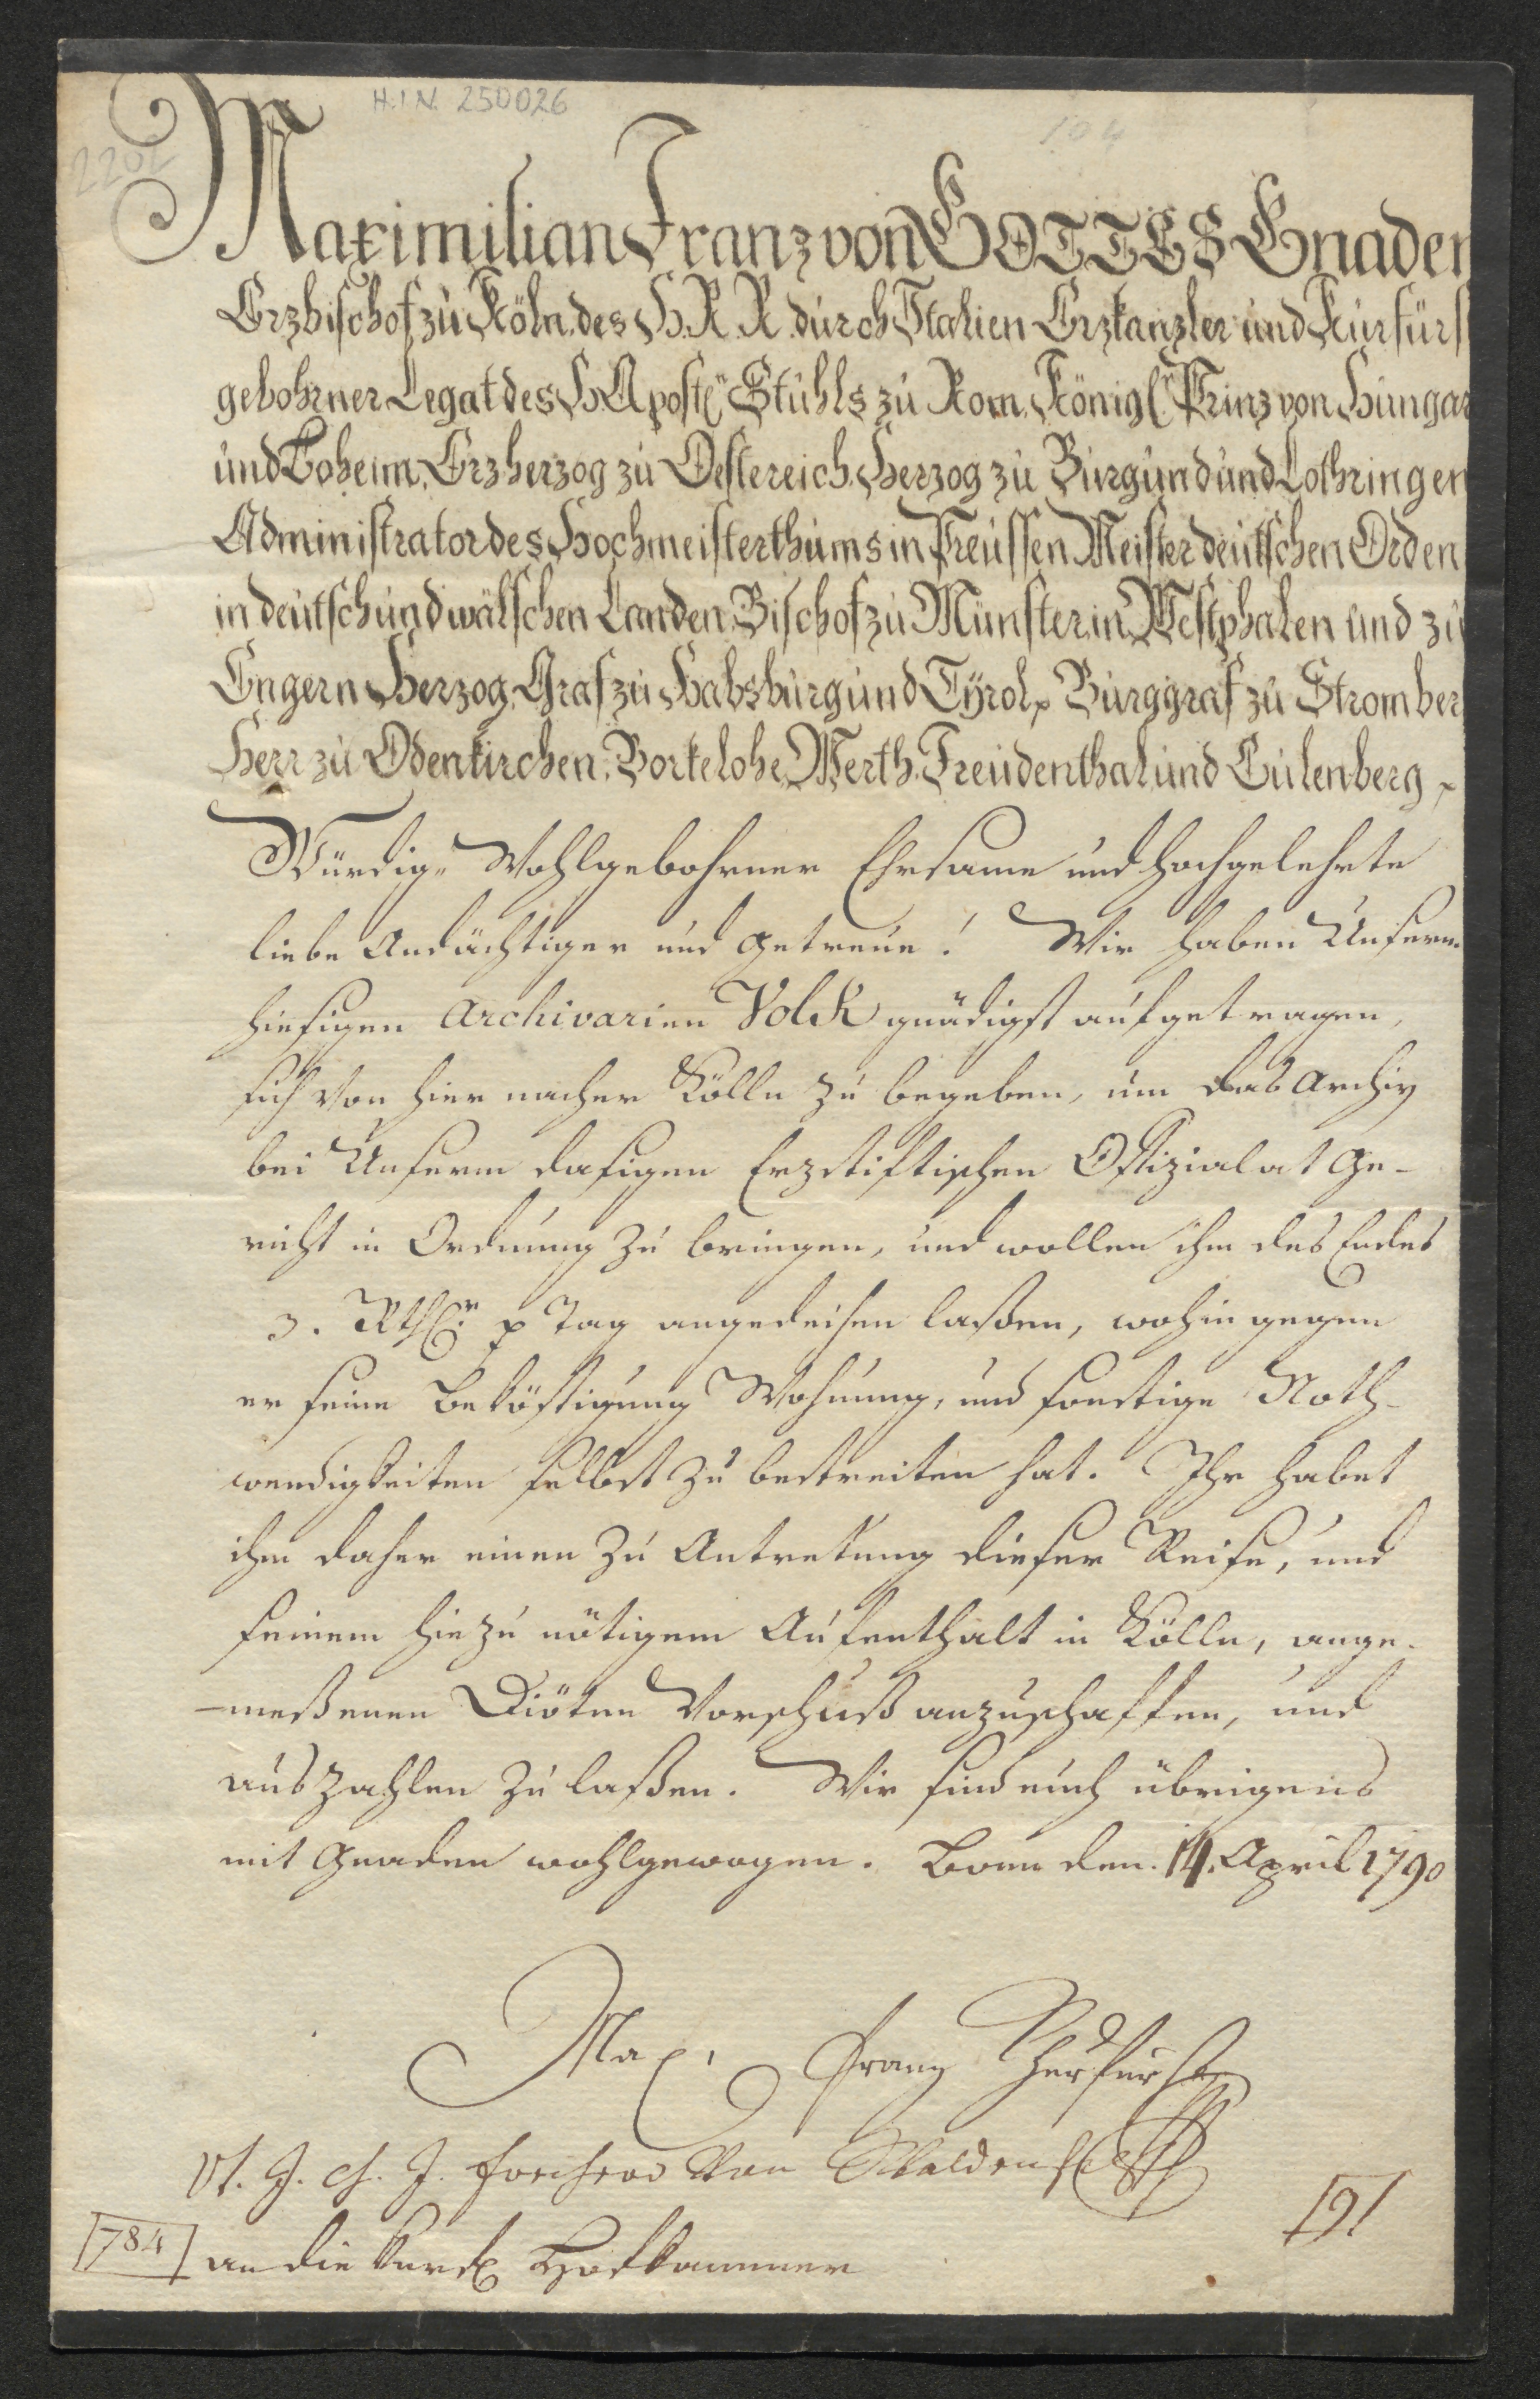 H.I.N. 250026
104
2202
Maximilian Franz von GOTTES Gnaden
Erzbischof zu Köln, des H. R. R. durch Italien Erzkanzler und Kurfürst
gebohrner Legat des H. Apostl. Stuhls zu Rom, Königl. Prinz von Hungar
und Boheim, Erzherzog zu Oestereich, Herzog zu Burgund und Lothringen
Administrator des Hochmeisterthums in Preussen, Meister deutschen Orden
in deutsch und wälschen Landen, Bischof zu Münster, in Westphalen und zu
Engern Herzog, Graf zu Habsburg und Tÿrol, Burggraf zu Stromber
Herr zu Odenkirchen, Borkelohe, Werth, Freudenthal und Eulenberg
Würdig- Wohlgebohrner Ehrsame und hochgelehrte
liebe Andächtiger und getreue! Wir haben Unserm
hiesigen Archivarien Volck gnädigst aufgetragen,
sich von hier nacher Kölln zu begeben, um das Archiv
bei Unserm dasigen Erzstiftischen Offizialat Ge-
richt in Ordnung zu bringen, und wollen ihm des Endes
3. Rthlr. p Tag angedeihen laßen, wohingegen
er seine Beköstigung Wohnung, und sonstige Noth-
wendigkeiten selbst zu bestreiten hat. Ihr habet
ihm daher einen zu Antretung dieser Reise, und
seinem hiezu nötigem Aufenthalt in Kölln, ange-
-meßenen Diöten Vorschuß anzuschaffen, und
auszahlen zu laßen. Wir sind euch übrigens
mit Gnaden wohlgewogen. Bonn den 14. April 1790
Max. Franz Churfürst
Vt. J. Ch. J. freiherr Von Waldenfels
191
784
an die Kurfl. Hofkammer